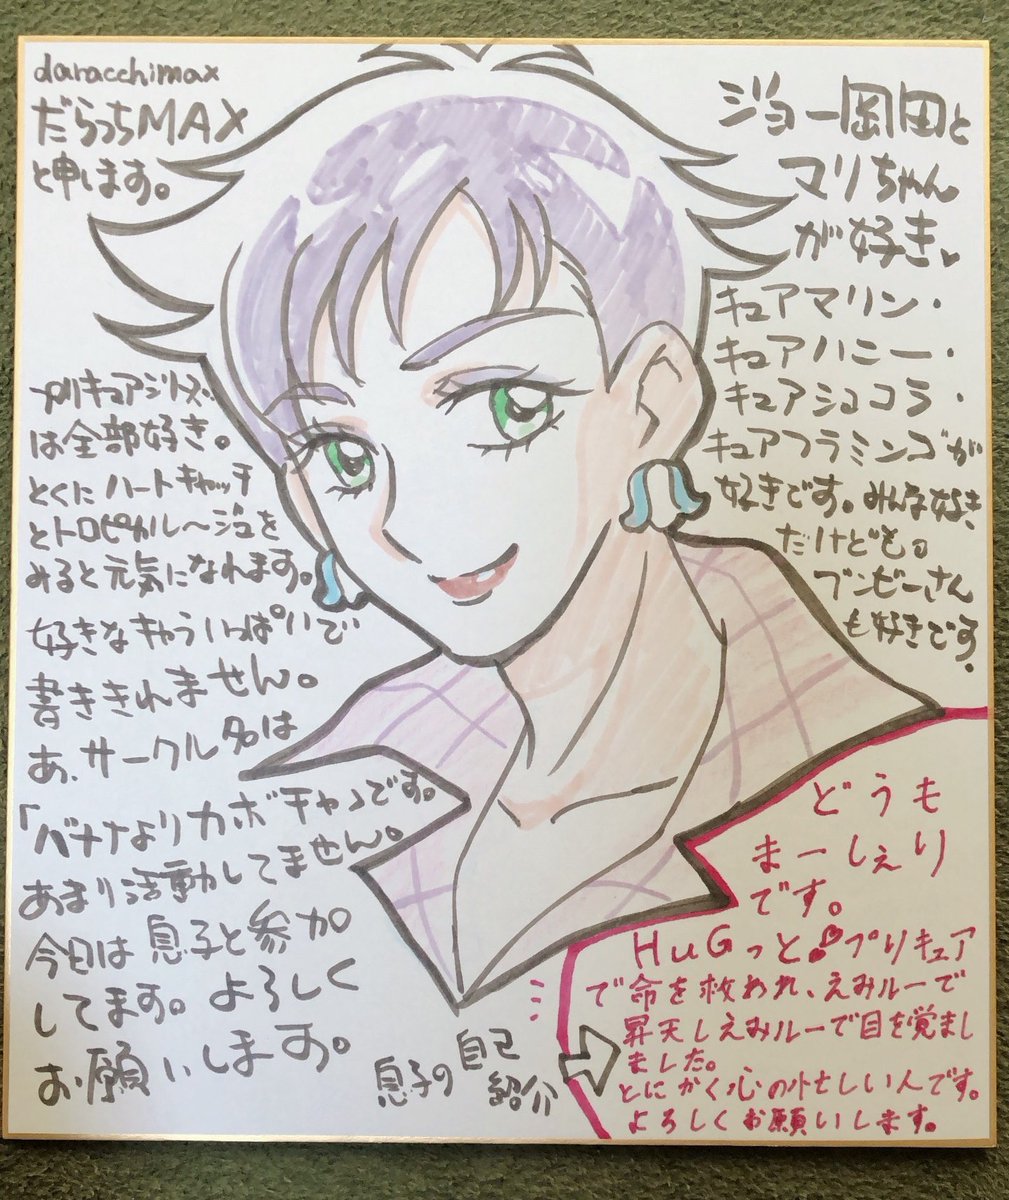 daracchimax
だらっちMAX
と申します。
プリキュアシリーズ
は全部好き。
とくにハートキャッチ
とトロピカル〜ジュを
みると元気になれます。
好きなキャラいっぱいで
書ききれません。
あ、サークル名は
「バナナよりカボチャ」です。
あまり活動してません。
今日は息子と参加
してます。よろしく
お願いします。
ジョー岡田と
マリちゃん
が好き♥
キュアマリン・
キュアハニー・
キュアショコラ・
キュアフラミンゴが
好きです。みんな好き
だけども。
ブンビーさん
も好きです。
息子の自己
紹介
どうも
まーしぇり
です。
HuGっと!プリキュア
で命を救われ、えみルーで
昇天しえみルーで目を覚まし
ました。
とにかく心の忙しい人です。
よろしくお願いします。